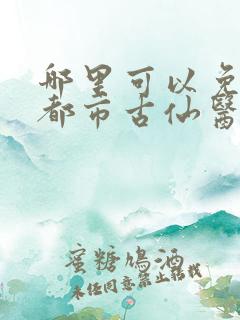 哪里可以免
都市古仙醫
蜜糖鳩酒
未经同意禁止转载